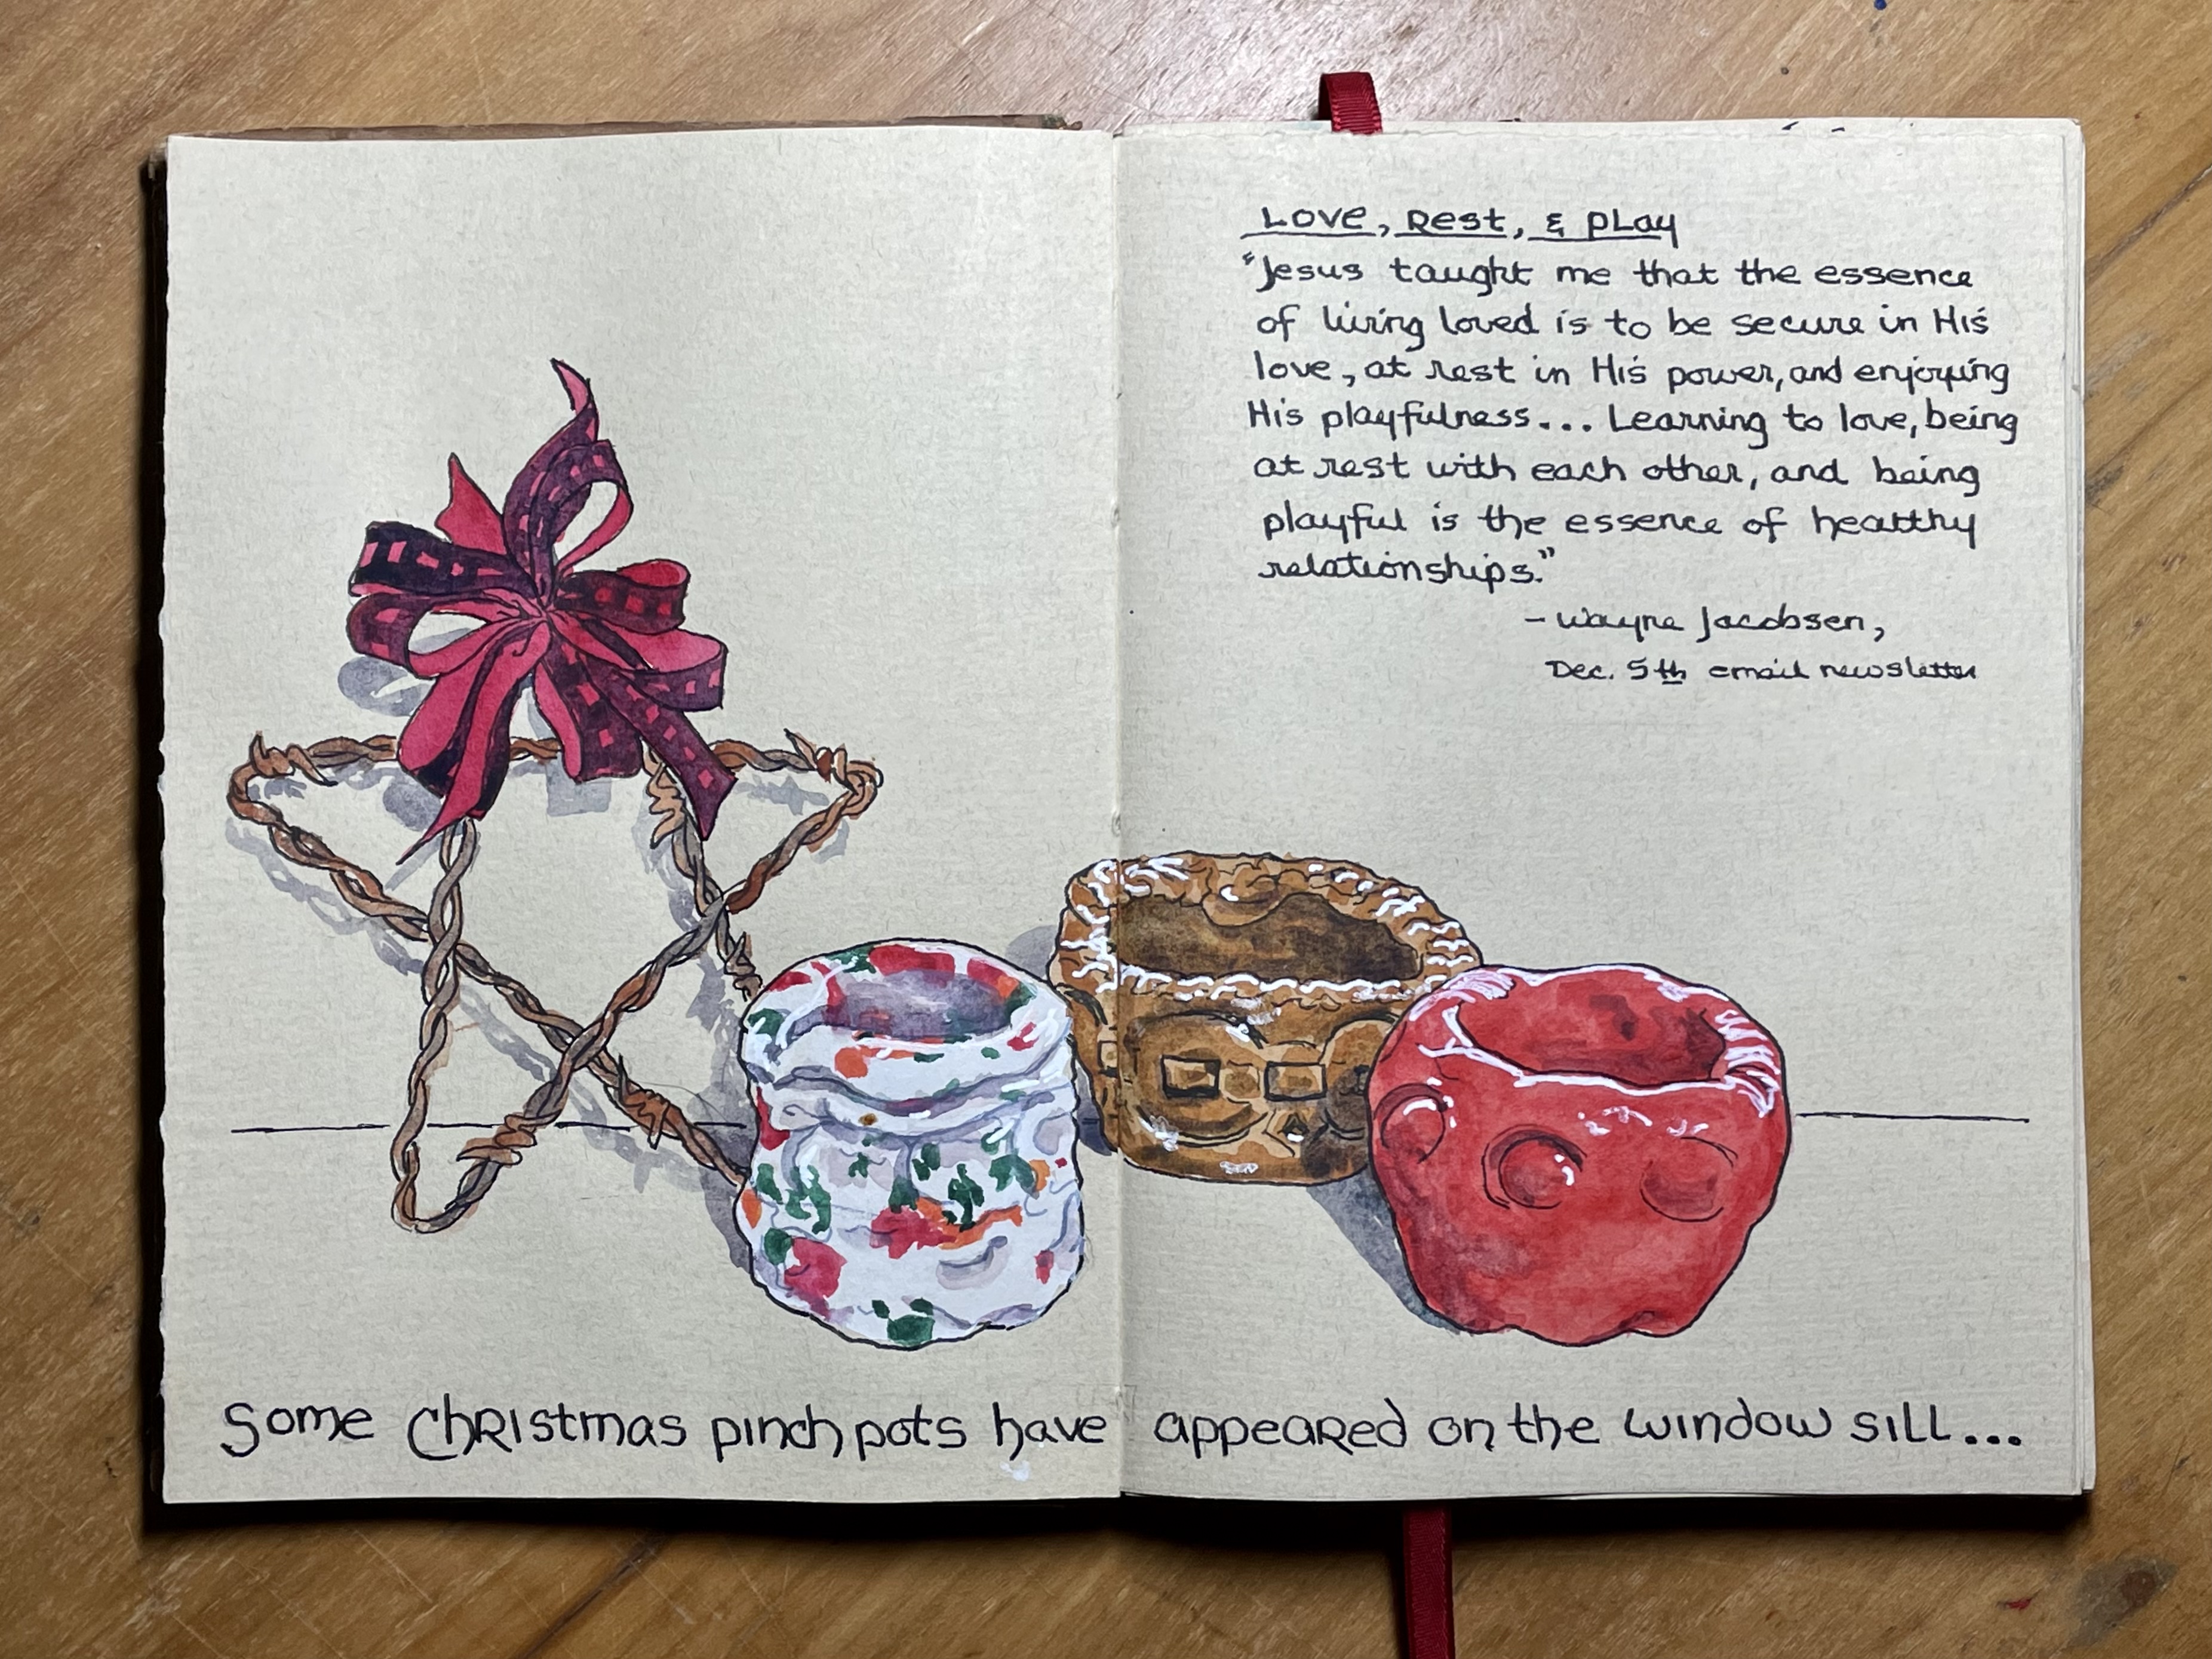 Love, Rest, & Play
"Jesus taught me that the essence
of living loved is to be secure in His
love, at rest in His power, and enjoying
His playfulness... Learning to love, being
at rest with each other, and being
playful is the essence of healthy
relationships."
- Wayne Jacobsen,
Dec. 5th email newsletter
Some Christmas pinch pots have appeared on the window sill...